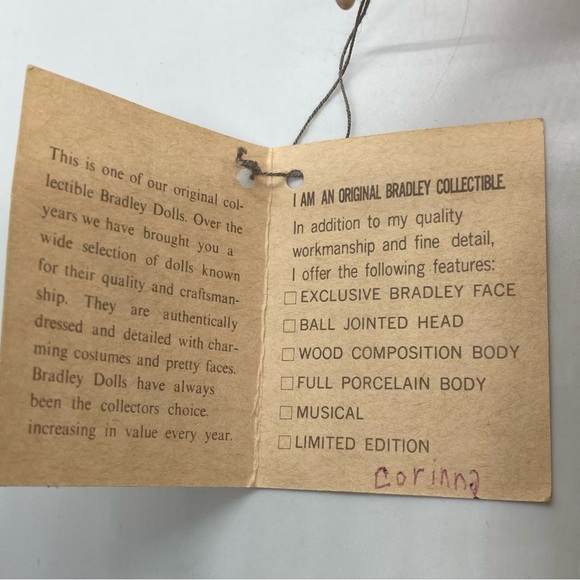 This is one of our original col-
lectible Bradley Dolls. Over the
years we have brought you a
wide selection of dolls known
for their quality and craftsman-
ship. They are authentically
dressed and detailed with char-
ming costumes and pretty faces.
Bradley Dolls have always
been the collectors choice.
increasing in value every year.
I AM AN ORIGINAL BRADLEY COLLECTIBLE.
In addition to my quality
workmanship and fine detail,
I offer the following features:
EXCLUSIVE BRADLEY FACE
BALL JOINTED HEAD
WOOD COMPOSITION BODY
FULL PORCELAIN BODY
MUSICAL
LIMITED EDITION
corinna